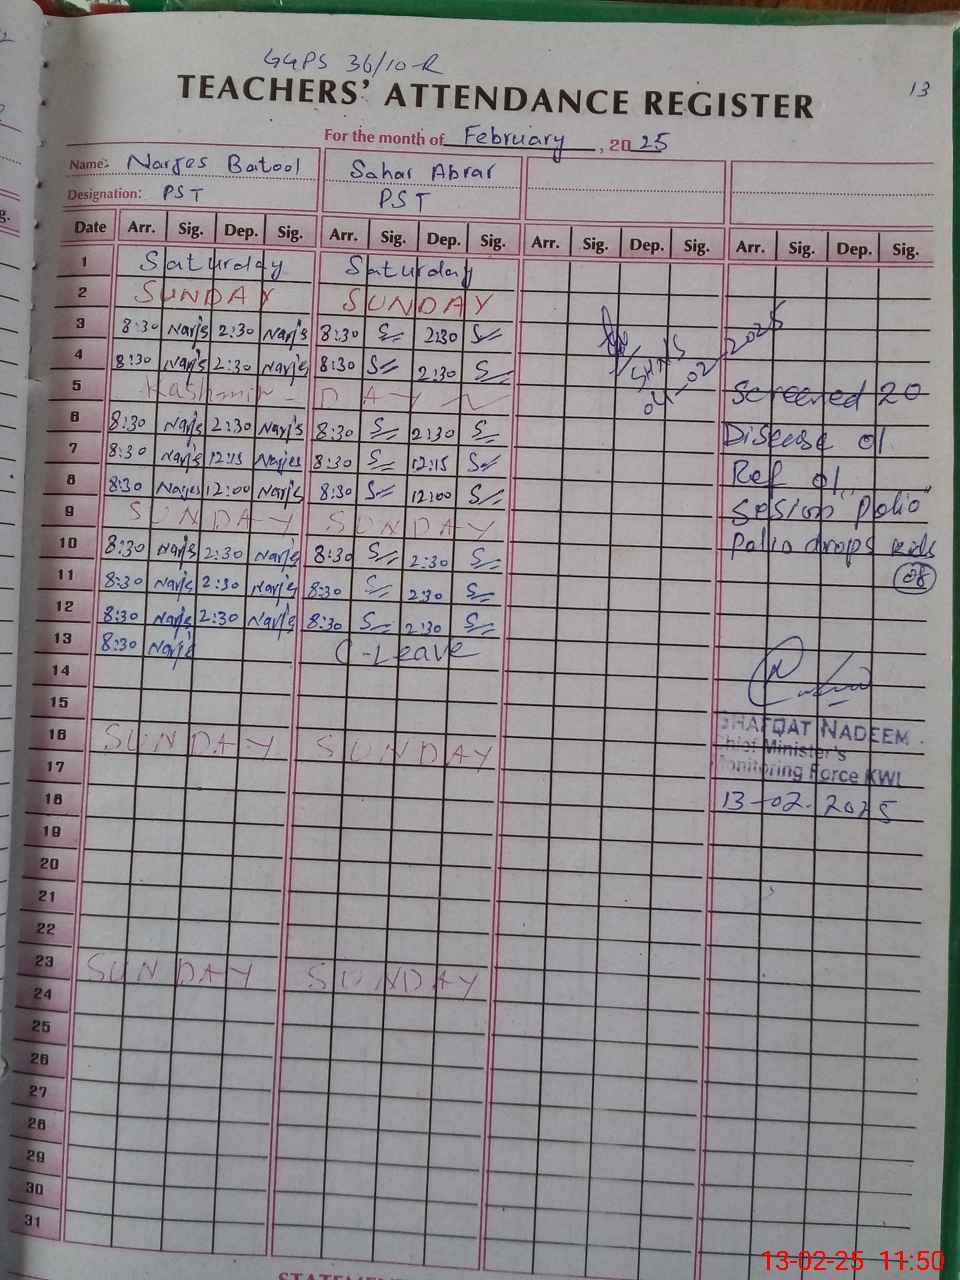 GGPS 36/10-R
13
TEACHERS' ATTENDANCE REGISTER
For the month of February, 2025
Name: Narjes Batool Sahar Abrar
Designation: PST PST
Date Arr. Sig. Dep. Sig. Arr. Sig. Dep. Sig. Arr. Sig. Dep. Sig. Arr. Sig. Dep. Sig.
1 Saturday Saturday
2 SUNDAY SUNDAY
3 8:30 Narjs 2:30 Narjs 8:30 2:30
4 8:30 Narjs 2:30 Narjs 8:30 2:30
5 Kashmir - DAY
6 8:30 Narjs 2:30 Narjs 8:30 2:30
7 8:30 Narjs 12:15 Narjes 8:30 12:15
8 8:30 Narjes 12:00 Narjs 8:30 12:00
9 SUNDAY SUNDAY
10 8:30 Narjs 2:30 Narjs 8:30 2:30
11 8:30 Narjs 2:30 Narjs 8:30 2:30
12 8:30 Narjs 2:30 Narjs 8:30 2:30
13 8:30 Narjs C-Leave
14
15
16 SUNDAY SUNDAY
17
18
19
20
21
22
23 SUNDAY SUNDAY
24
25
26
27
28
29
30
31
SHNS
04-02-2025
Screened 20
Disease 01
Ref 01
Session "Polio"
Polio drops kids
08
SHAFQAT NADEEM
Chief Minister's
Monitoring Force KWL
13-02-2025
13-02-25 11:50